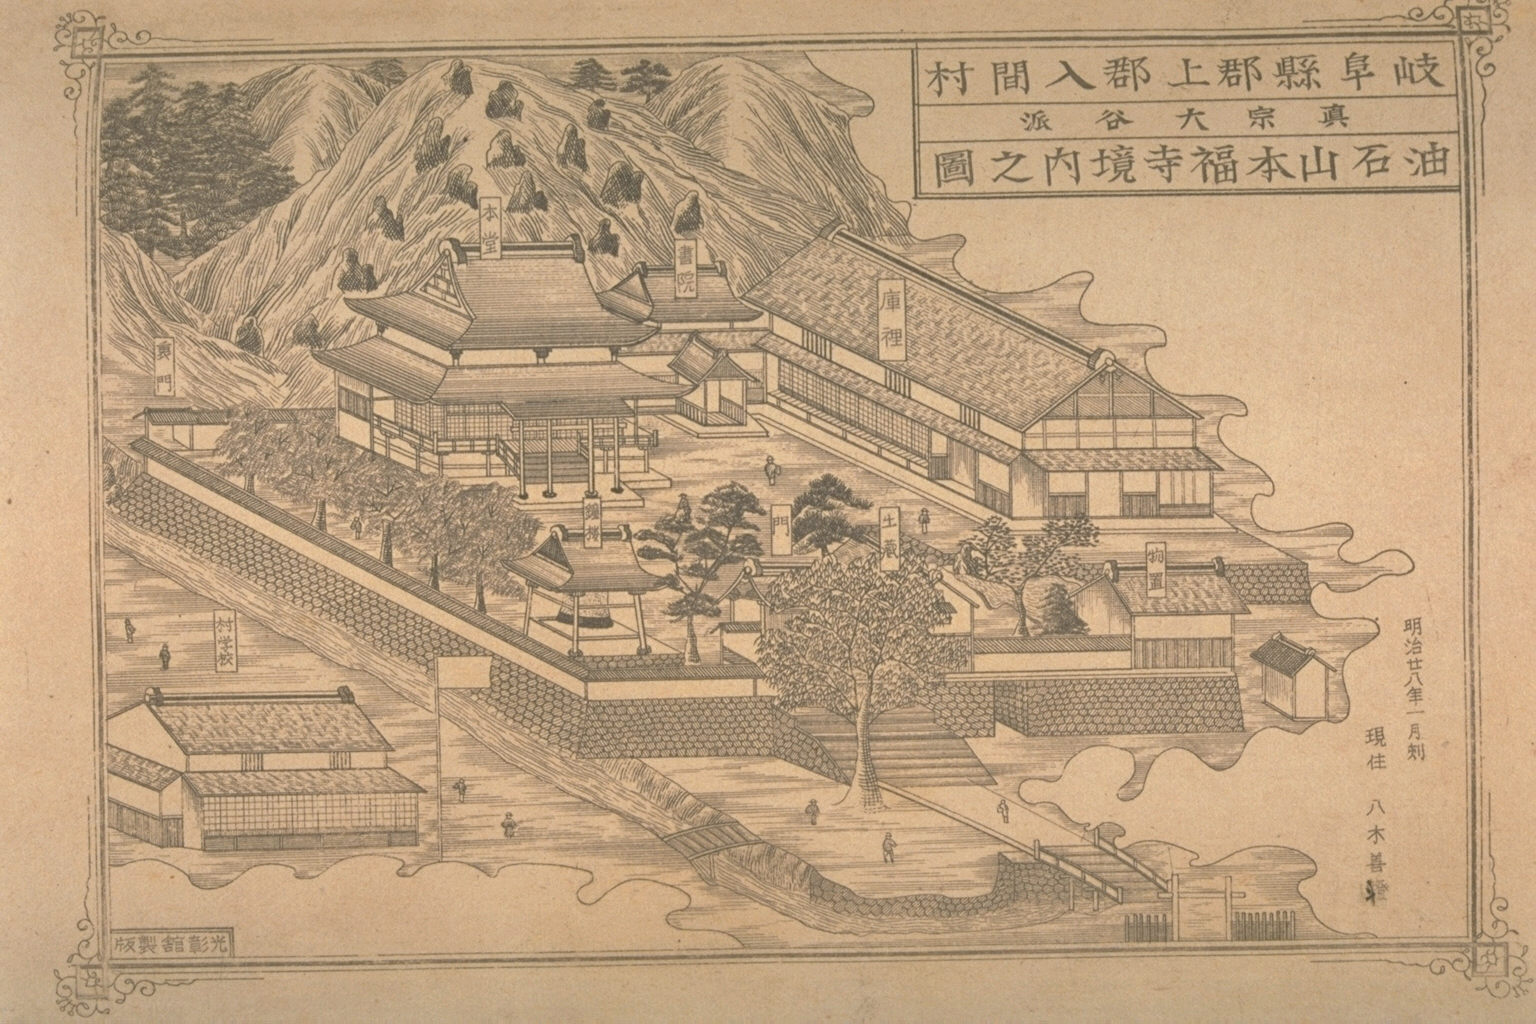 岐阜縣郡上郡入間村
真宗大谷派
油石山本福寺境内之圖
本堂
書院
庫裡
裏門
鐘楼
門
土蔵
物置
村学校
明治廿八年一月刻
現住 八木善
光彰舘製版